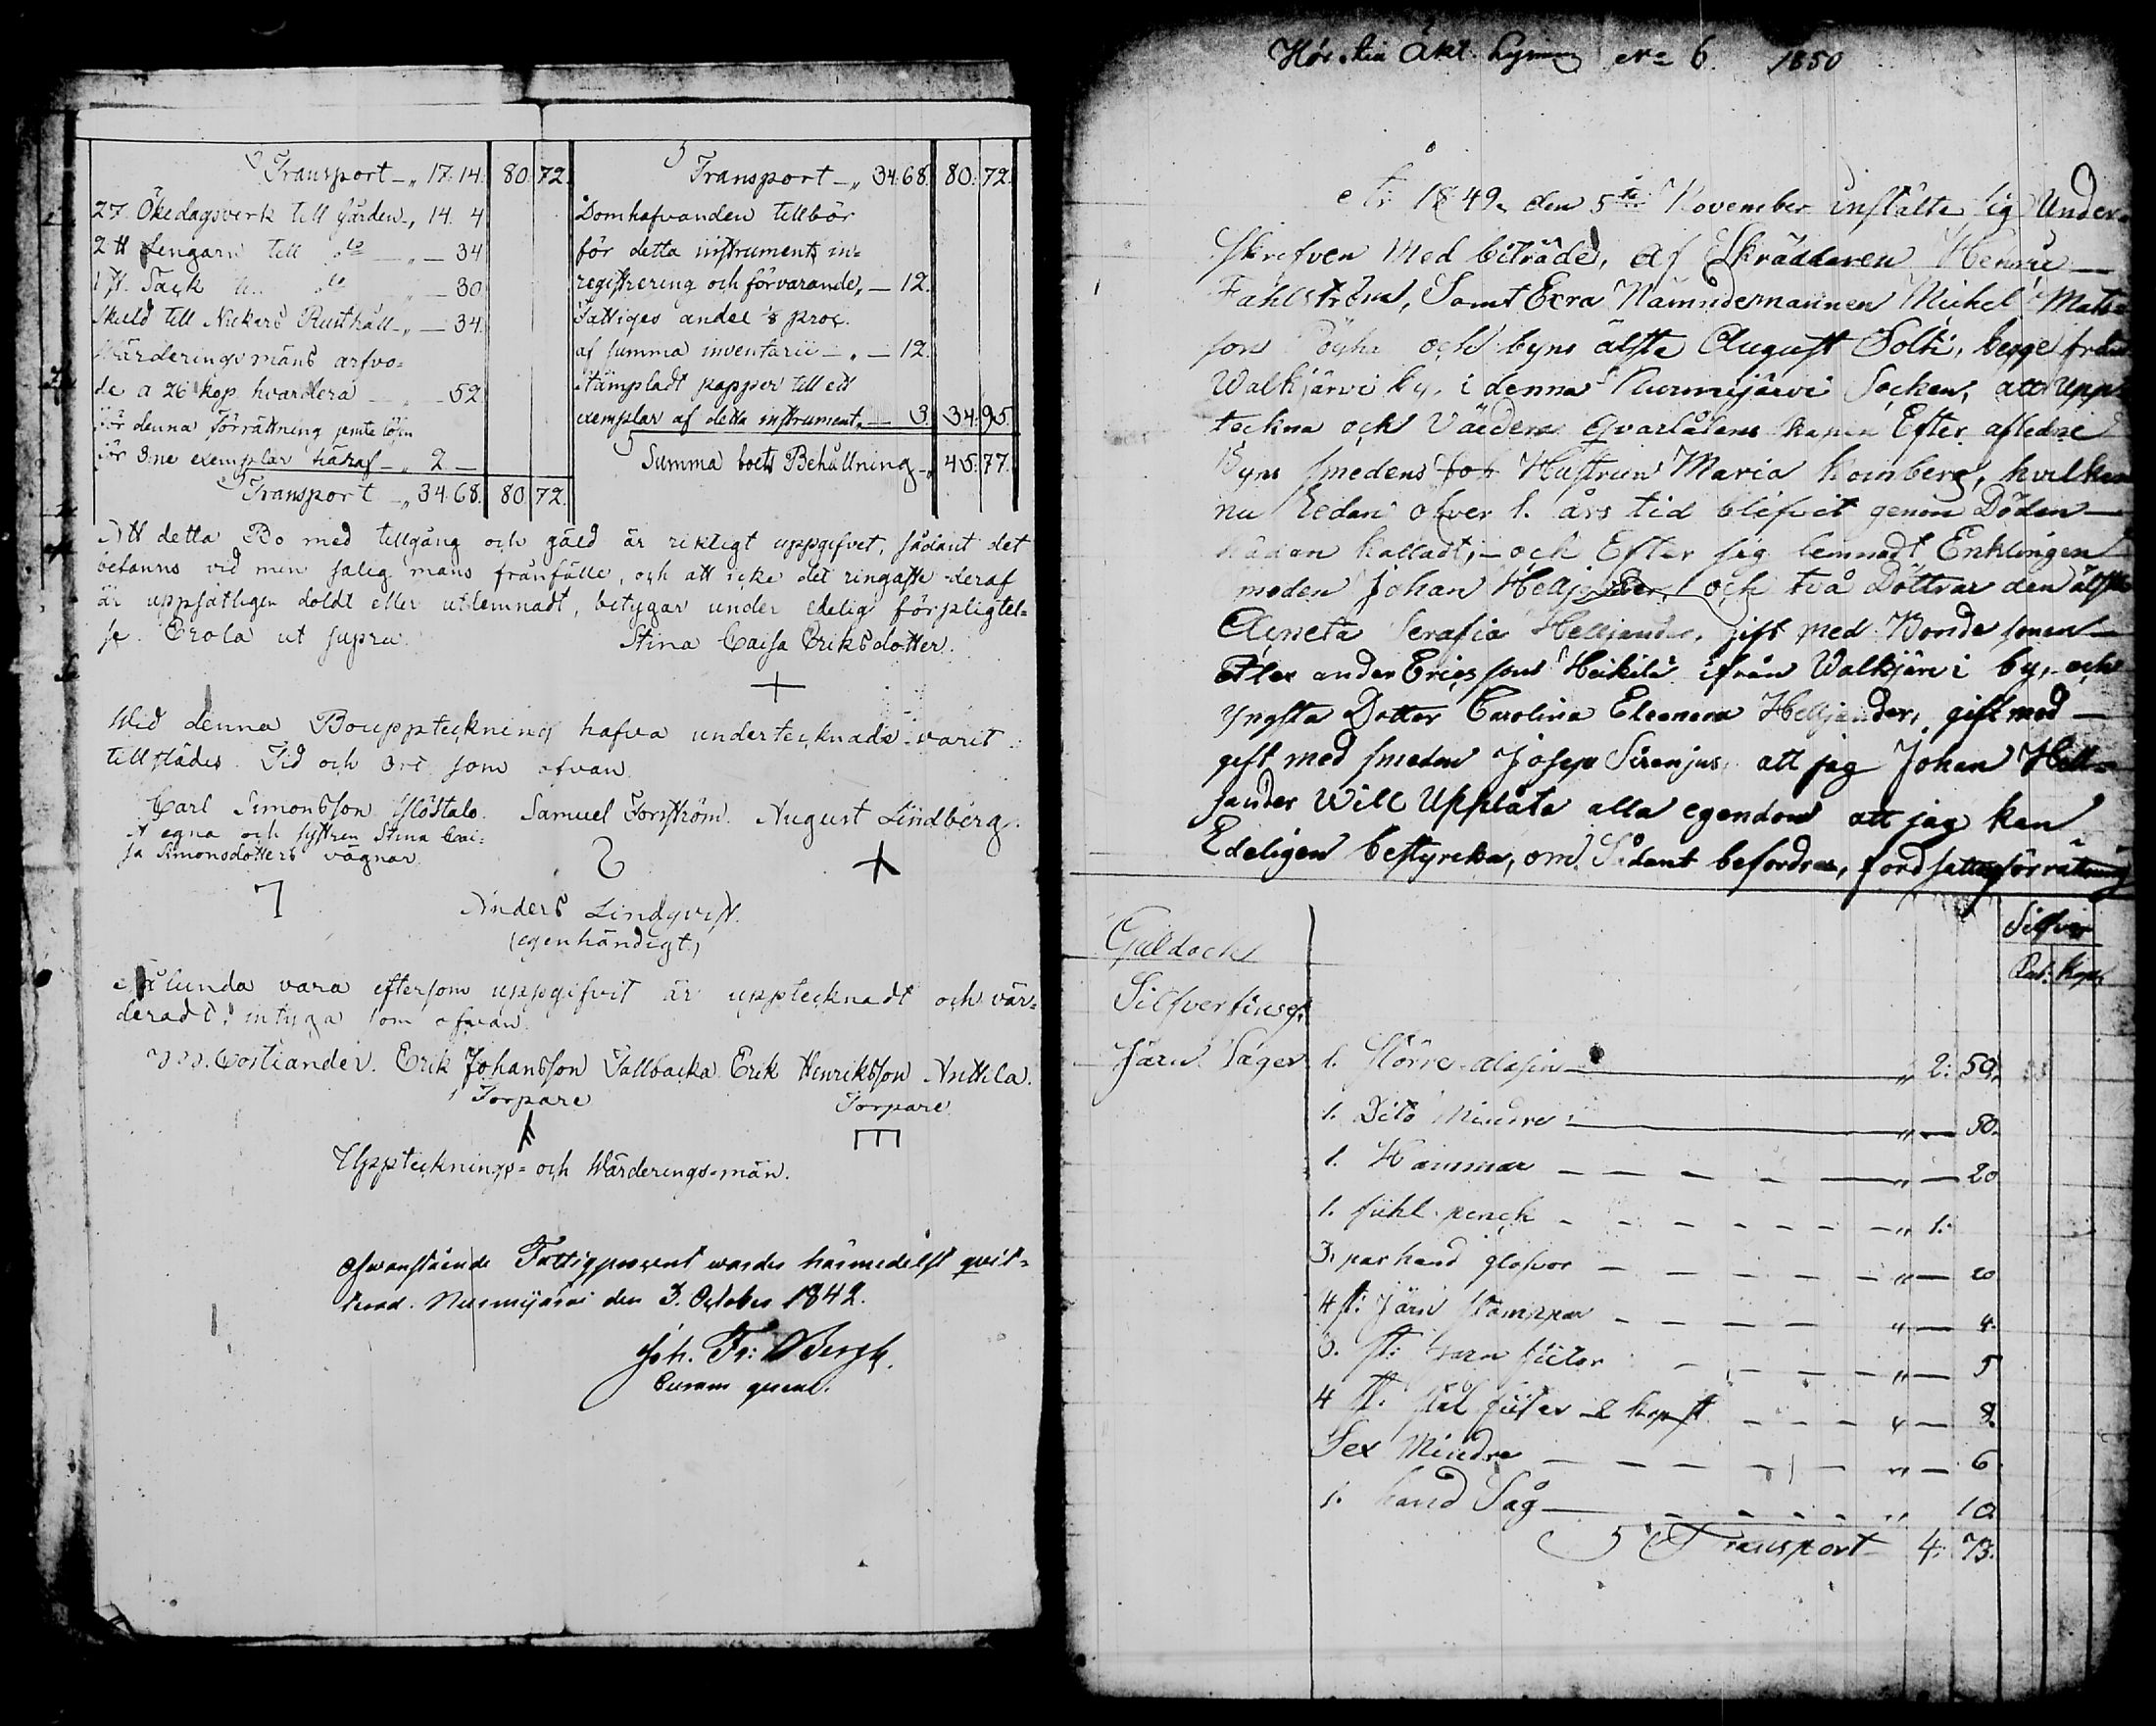 Transport — „ 17. 14. 80. 72.
27. Ökedagsverk till Gården „ 14. 4
2 ₶ Lengarn till d:o — „ — 34
1 st. Säck till d:o „ — 30
Skuld till Nickars Rusthåll — „ — 34.
Wärderingsmäns arfvo-
de a 26 kop. hvardera — „ — 52
För denna förrättning jemte lösn
för 3ne exemplar häraf — „ 2 —
Transport — „ 34. 68. 80. 72.
Transport — „ 34. 68. 80. 72.
Domhafvanden tillbör
för detta instruments in-
registrering och förvarande „ — 12.
Fattiges andel ⅛ proc.
af summa inventarii — „ — 12.
Stämpladt papper till ett
exemplar af detta instrument „ — 3. 34. 95.
Summa boets Behållning — „ 45. 77.
Att detta Bo med tillgång och gäld är riktigt uppgifvet, sådant det
befanns vid min salig mans frånfälle, och att icke det ringaste deraf
är uppsåtligen doldt eller utlemnadt, betygar under edelig förpligtel-
se. Erola ut supra.
Stina Caisa Eriksdotter.
Wid denna Bouppteckning hafva undertecknade varit
tillstädes. Tid och ort som ofvan.
Carl Simonsson Samuel Forsström. August Lindberg.
egna och systren Stina Cai-
sa Simonsdotters vägnar.
Anders Lindqvist.
(egenhändigt)
Sålunda vara eftersom uppgifvit är upptecknadt och vär-
deradt, intyga som ofvan.
Costiander. Erik Johansson Tallbacka. Erik Henriksson Anttila.
Torpare Torpare
Upptecknings- och Wärderings-män.
Ofvanstående Fattigprocent wardes härmedelst quit-
terad. Nurmijärvi den 3. October 1842.
Joh. Fr: Bergh.
Curam gerens.
No 6. 1850
År 1849, den 5te November instälte sig Under-
skrefven Med biträde, af Skräddaren Henric
Fahlström, Samt Exra Nämndemannen Michel Mats-
son och byns älste August Solki, begge från
Walkjärvi by, i denna Nurmijärvi Socken, att upp-
teckna och Värdera Qvarlåtens kapen Efter aflidne
Byns smedens Hustrun Maria Hornberg, hvilken
nu Sedan öfver 1. års tid blifvit genom Döden
hädan kallad; — och Efter sig lemnadt Enklingen
smeden Johan Helljander, och två Döttrar den älsta
Agneta Serafia Helljander, gift med Bonde sonen
Alexander Ericsson Heikilä ifrån Walkjärvi by, och
yngsta Dotter Carolina Eleonora Helljander, gift med
gift med smeden Josep Sirenjus, att jag Johan Hell-
jander Will Upplåta alla egendom att jag kan
Edeligen bestyrcka, om Sådant befordras, fordsattes förrättning
Silfver
Rub: Kop:
Guld och
Silfver fins ej.
Järn Sager 1. Större „ 2: 50.
1. Dito Mindre — „ — 50.
1. Hammar — „ — 20
1. „ 1:
3. par hand — „ — 20
4 st: Järn — „ — 4.
st: — „ — 5
4 st. stål 2 kop st. — „ — 8.
Sex Mindre — „ — 6
1. hand Såg — „ 10
Transport 4. 73.